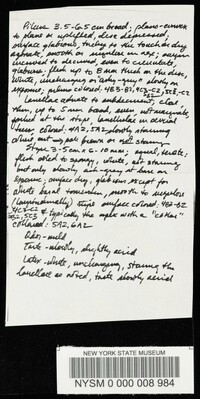 Pileus 3.5-6.5 cm broad, plano-convex
to plane or uplifted, disc depressed,
surface glabrous, tacky to the touch or dry
smooth or in age; margin
incurved to decurved, even to
glabrous; flesh up to 8 mm thick on the disc,
white, unchanging or ashy-gray slowly on
exposure; pileus colored: 4C3-
Lamellae adnate to subdecurrent, close
up to 5 mm broad, even not marginate,
forked at the stipe, lamellulae in several
tiers, colored: 4A2, 5A2 slowly staining
brown or
Stipe 3-5 cm x 6-10 mm; equal, terete;
flesh solid to spongy, white, not staining
but only slowly ash-gray at base on
exposure; surface dry, glabrous except for
white basal tomentum, smooth to
stipe surface colored: 4B2-B2
4C3-C2
5B2, 5C3 & typically the apex with a "collar"
colored: 5A2, 6A2
Odor - mild
Taste - slowly, slightly acrid
Latex - white, unchanging, staining the
lamellae as noted, taste slowly acrid
NEW YORK STATE MUSEUM
NYSM 0 000 008 984